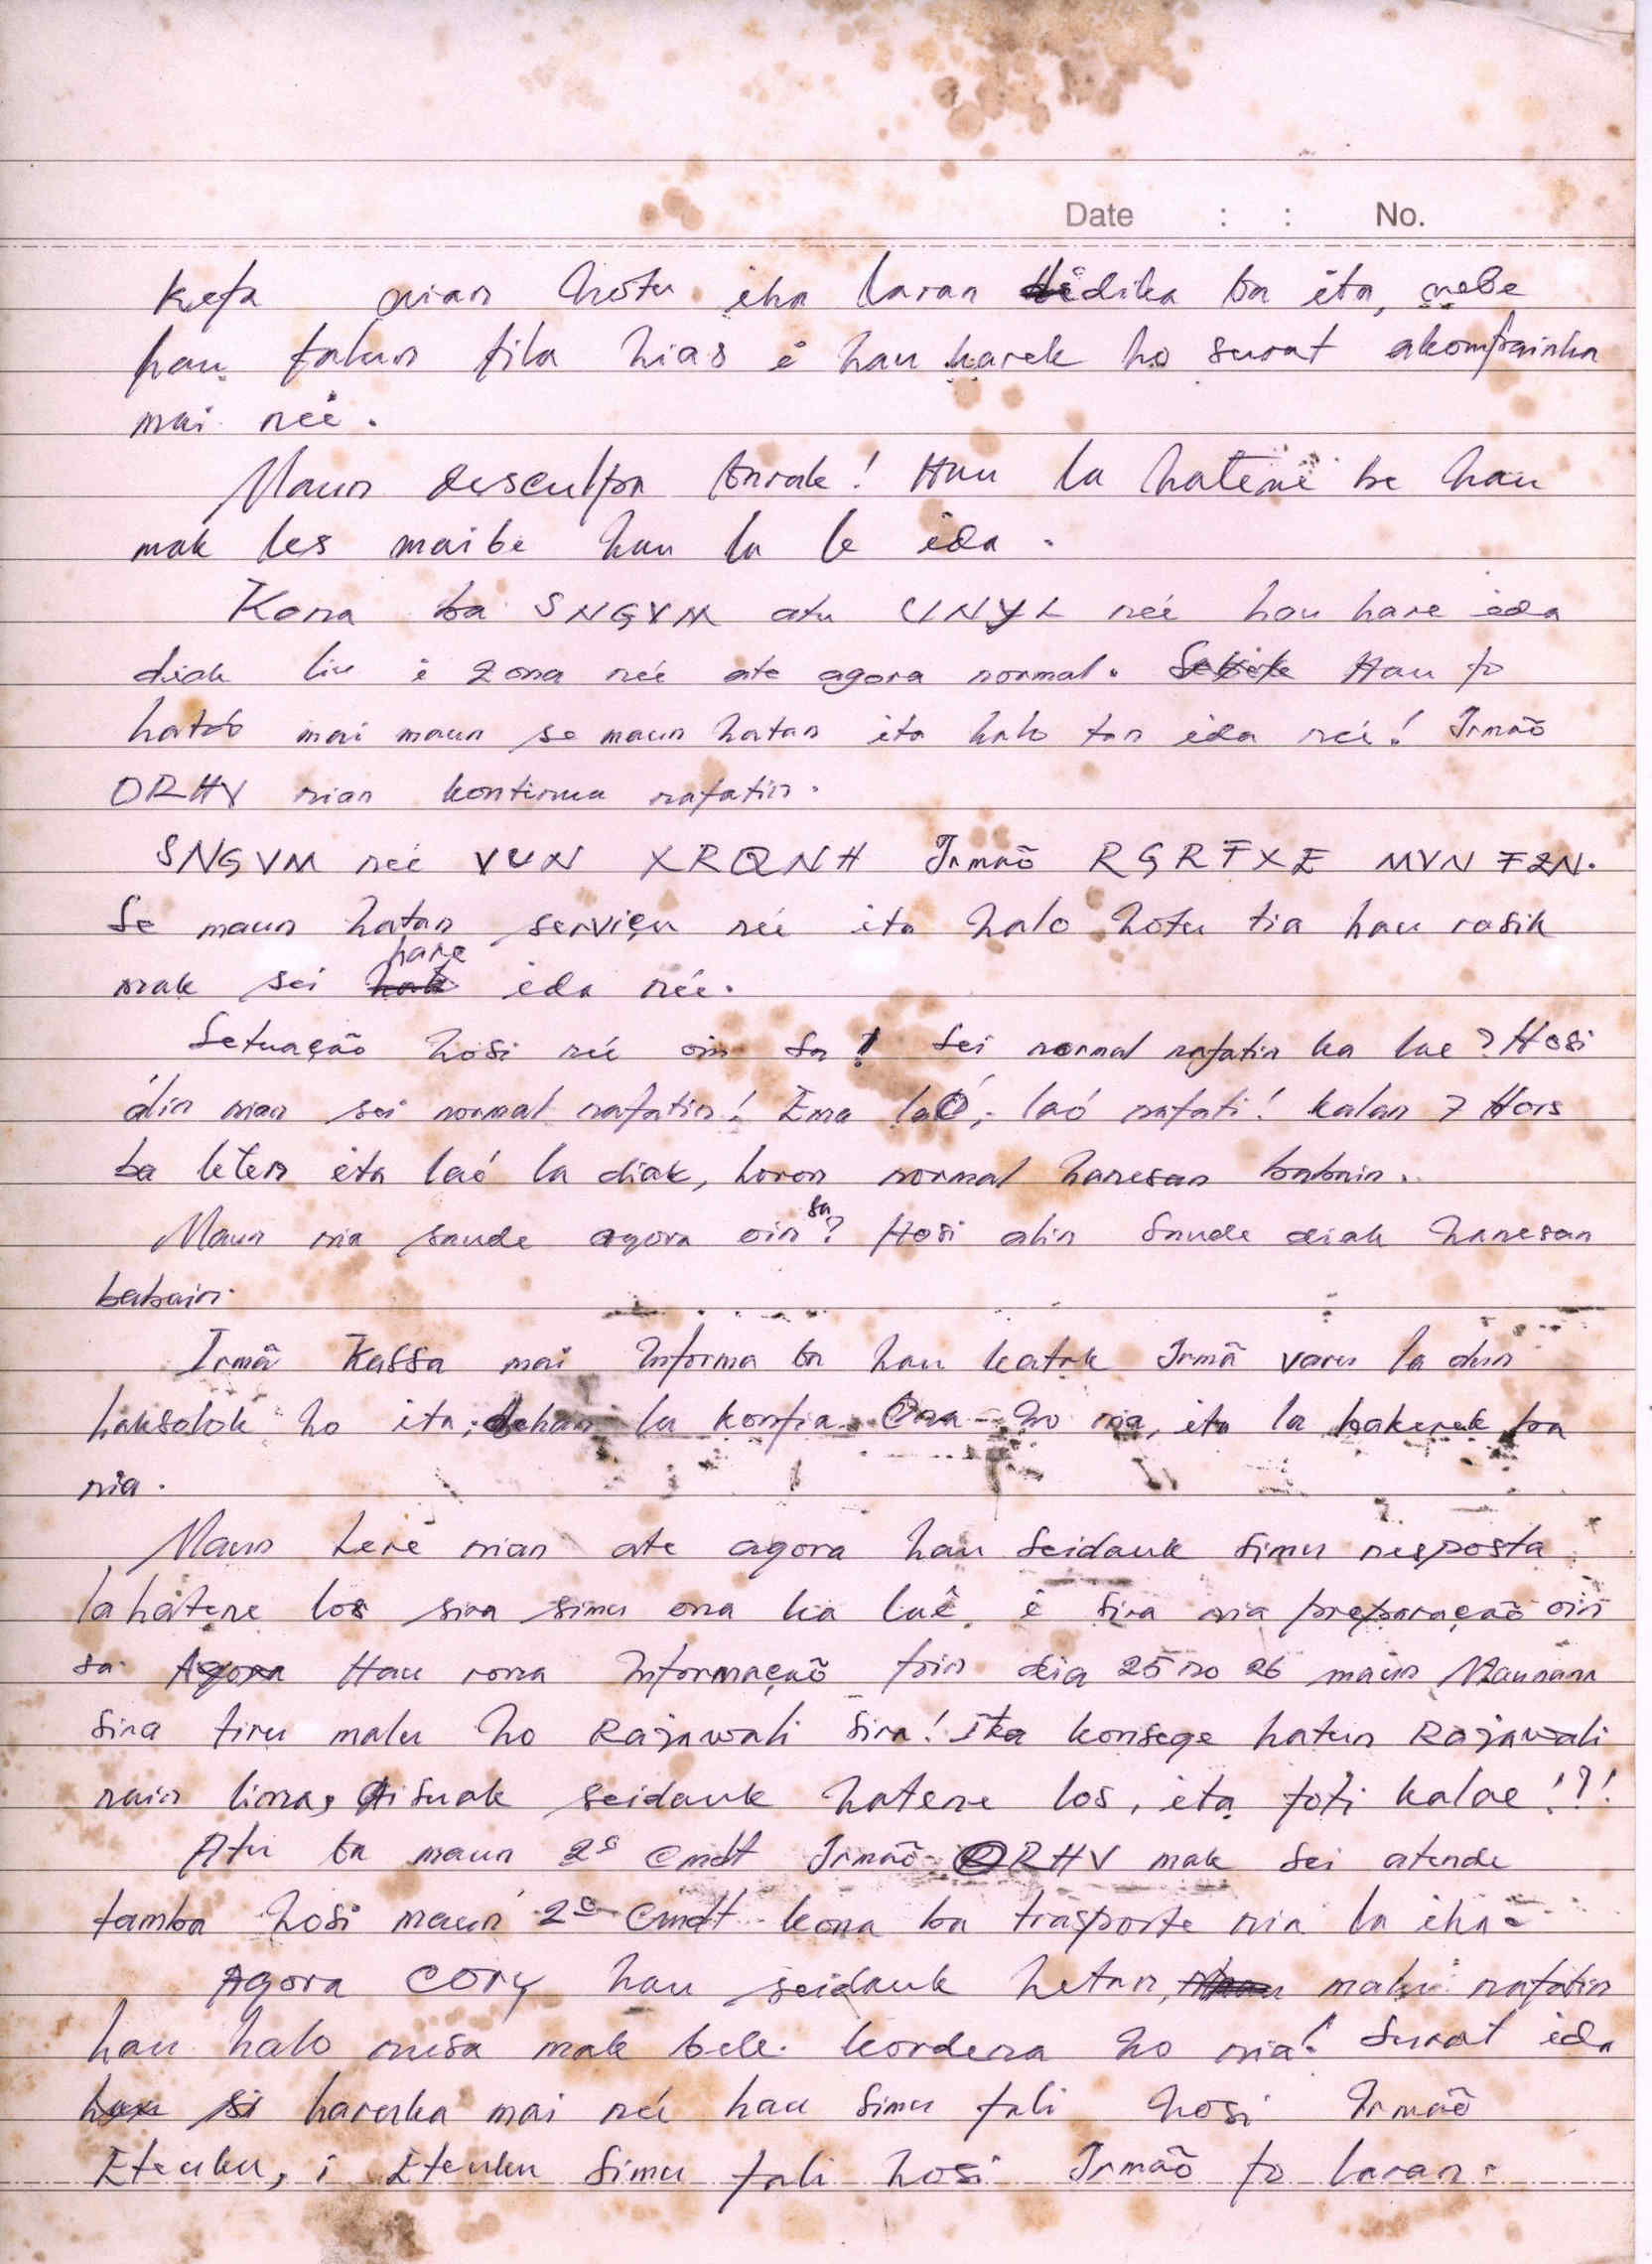 Date : : No.
Keta nian hotu iha laran dedika ba ita, nebe
hau falun fila hias i hau harek ho surat akompainha
mai neé.
Maun desculpa barak! Hau la hatene be hau
mak les maibe hau la le ida.
Kona ba SNGVM atu UNYL neé hau hare ida
diak liu i zona neé ate agora normal. Hau fo
hatob mai maun se maun hatan ita halo tan ida neé! Irmaõ
ORHV nian kontinua nafatin.
SNGVM neé VUN XRQNH Irmaõ RGRFXE MVN FZN.
Se maun hatan serviçu neé ita halo hotu tia hau rasik
mak sei hare ida neé.
Setuaçaõ hosi neé oin sa! Sei normal nafatin ka lae? Hosi
álin nian sei normal nafatin! Ema laó, laó nafati! kalan 7 Hors
ba leten ita laó la diak, loron normal hanesan babain.
Maun nia saude agora oin sa? Hosi alin Saude diak hanesan
babain.
Irmã Kassa mai Informa ba hau katak Irmã varu la dun
haksolok ho ita, dehan la konfia Ona ho nia, ita la hakerek ba
nia.
Maun Lere nian ate agora hau seidauk simu resposta
la hatene los sira simu ona ka laê i sira nia preparaçaõ oin
sa Hau rona Informaçaõ foin dia 25 no 26 maun Maunana
sira tiru malu ho Rajawali sira! Ita konsege hatun Rajawali
nain lima, Ai suak seidauk hatene los, ita foti kalae!?!
Atu ba maun 2º Cmdt Irmaõ ORHV mak sei atende
tamba hosi maun 2º Cmdt kona ba trasporte nia la iha.
Agora CORY hau seidauk hetan, malu nafatin
hau halo nusa mak bele kordena ho nia! Surat ida
haruka mai neé hau simu fali hosi Irmaõ
Eteuku, i Eteuku simu fali hosi Irmaõ fo laran.